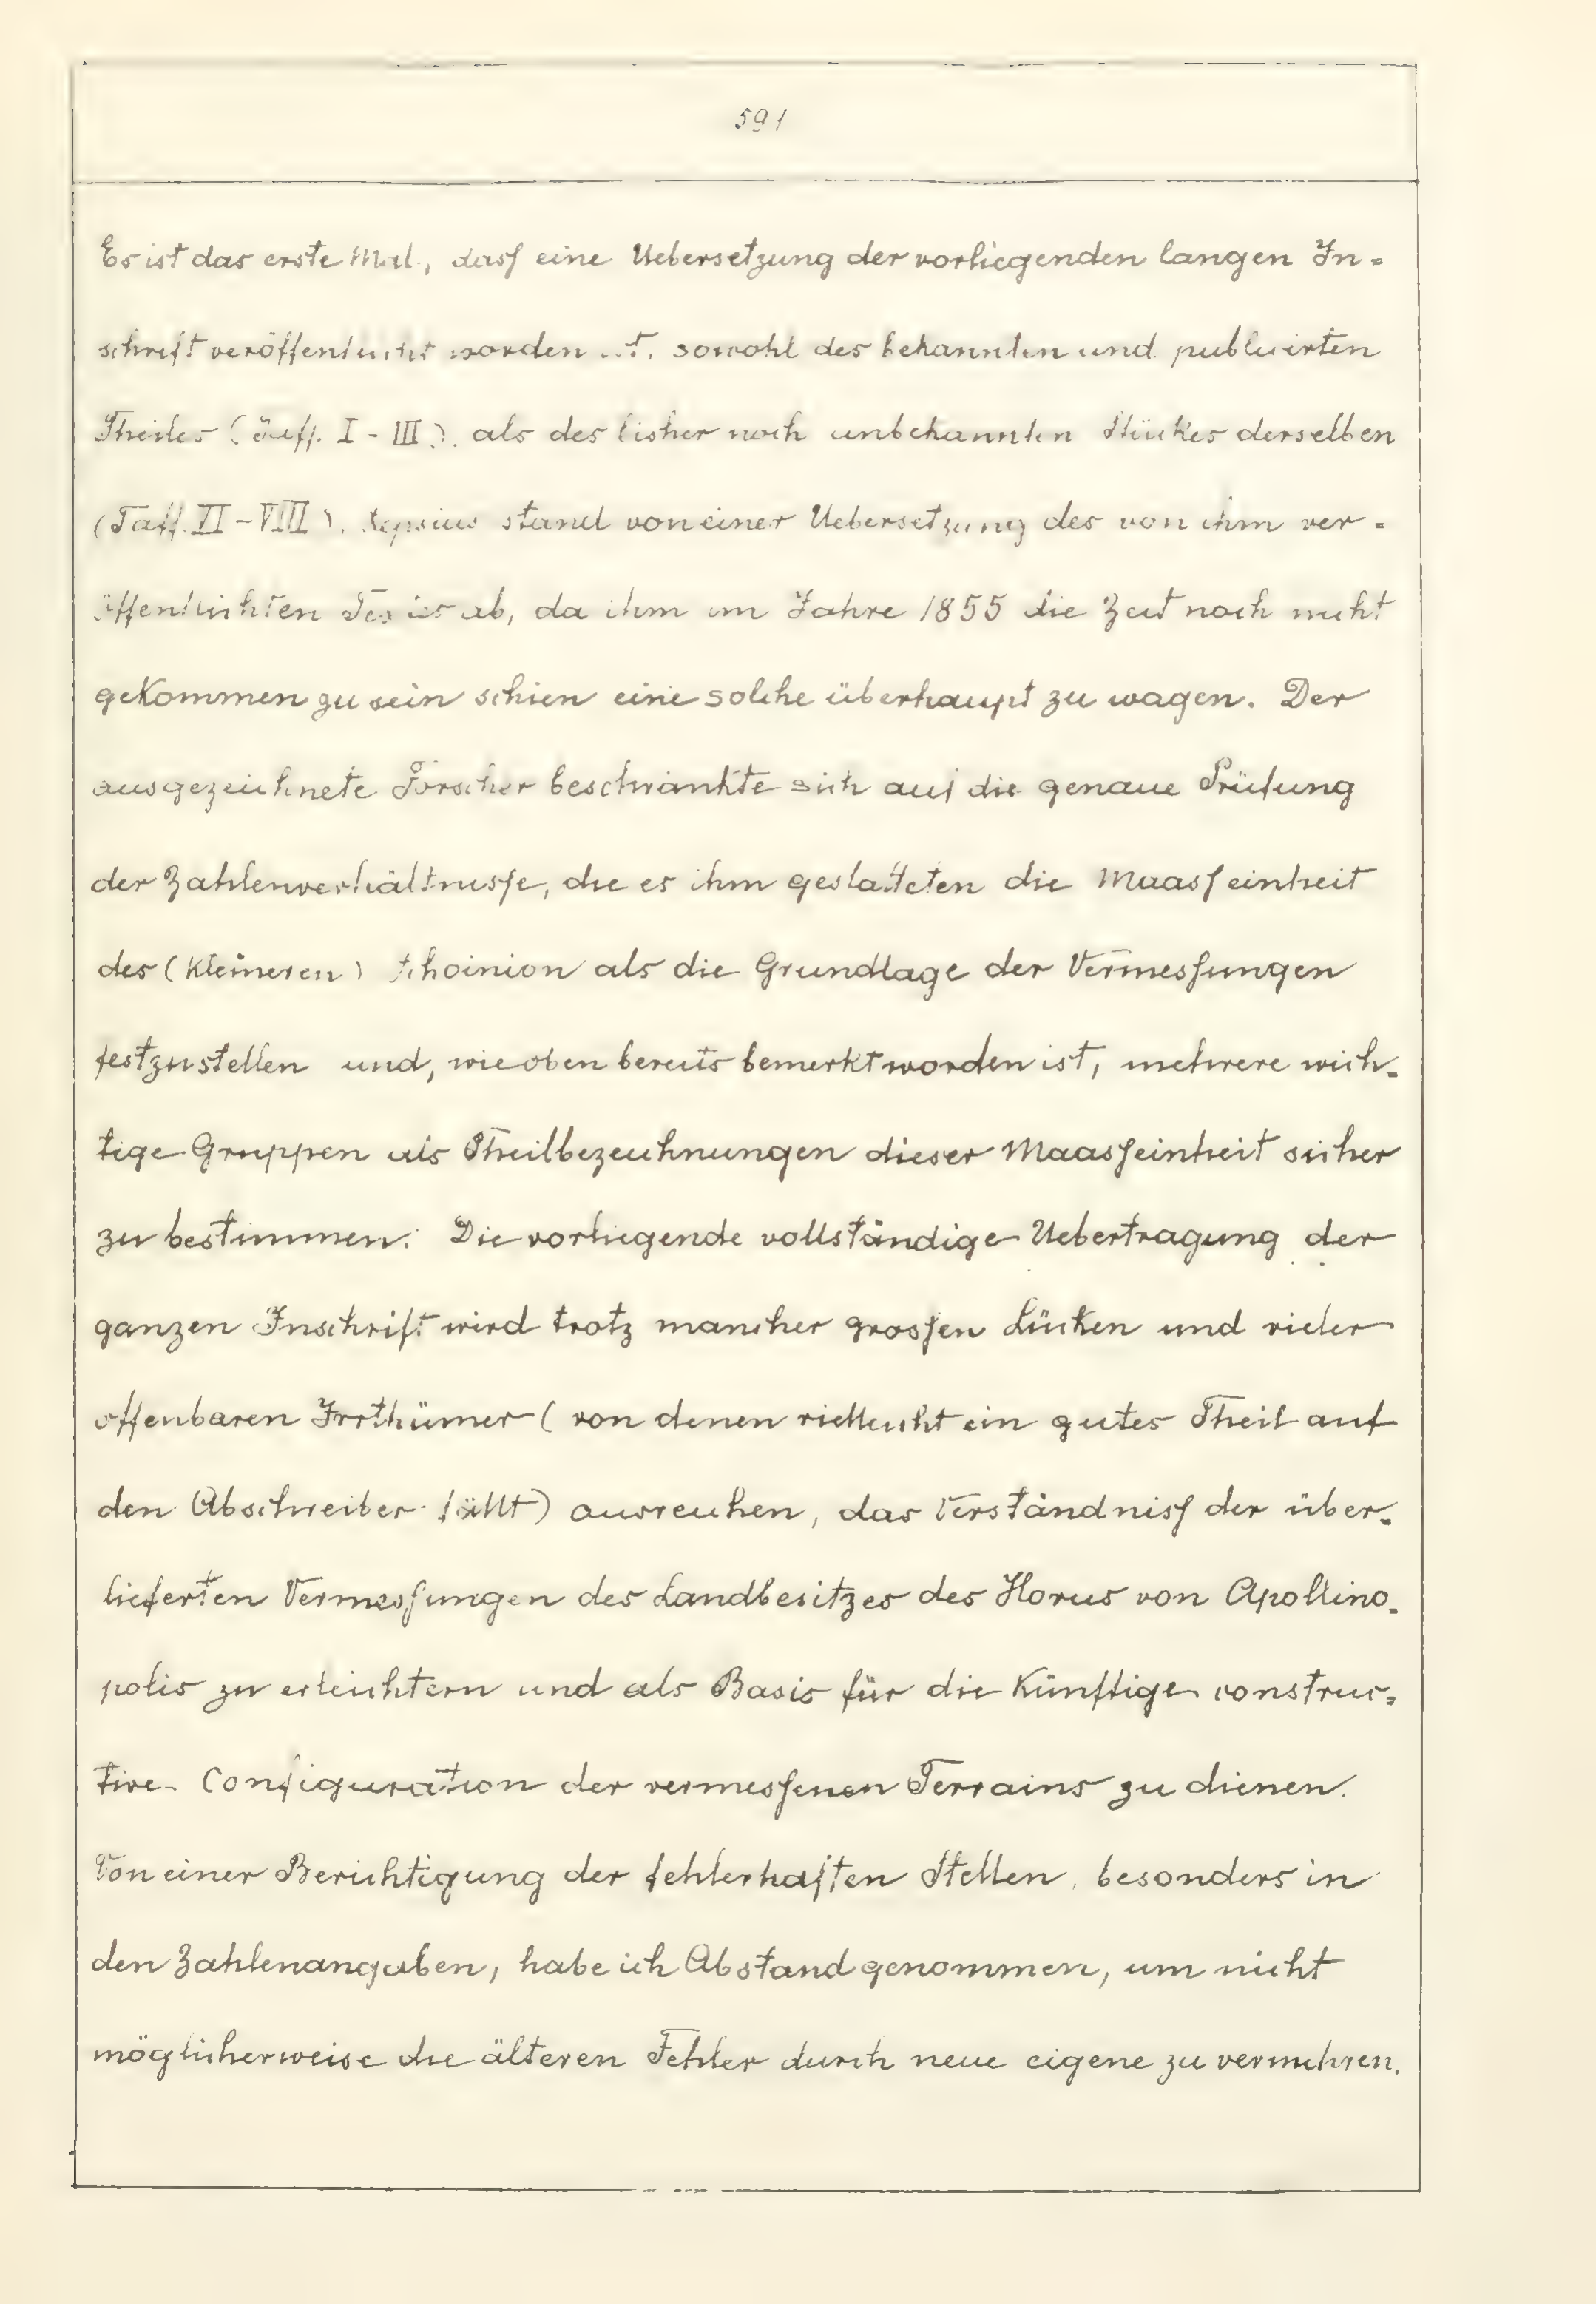 591
Es ist das erste Mal, dass eine Uebersetzung der vorliegenden langen In-
schrift veröffentlicht worden ist, sowohl des bekannten und publicirten
Theiles (Taff. I - III), als des bisher noch unbekannten Stückes derselben
(Taff. II - VIII). Lepsius stand von einer Uebersetzung des von ihm ver-
öffentlichten Textes ab, da ihm im Jahre 1855 die Zeit noch nicht
gekommen zu sein schien eine solche überhaupt zu wagen. Der
ausgezeichnete Forscher beschränkte sich auf die genaue Prüfung
der Zahlenverhältnisse, die es ihm gestatteten die Maasseinheit
des (kleineren) schoinion als die Grundlage der Vermessungen
festzustellen und, wie oben bereits bemerkt worden ist, mehrere wich-
tige Gruppen als Theilbezeichnungen dieser Maasseinheit sicher
zu bestimmen. Die vorliegende vollständige Uebertragung der
ganzen Inschrift wird trotz mancher grossen Lücken und vieler
offenbaren Irrthümer (von denen vielleicht ein gutes Theil auf
den Abschreiber fällt) ausreichen, das Verständniss der über-
lieferten Vermessungen des Landbesitzes des Horus von Apollino-
polis zu erleichtern und als Basis für die künftige construc-
tive Configuration der vermessenen Terrains zu dienen.
Von einer Berichtigung der fehlerhaften Stellen, besonders in
den Zahlenangaben, habe ich Abstand genommen, um nicht
möglicherweise die älteren Fehler durch neue eigene zu vermehren.